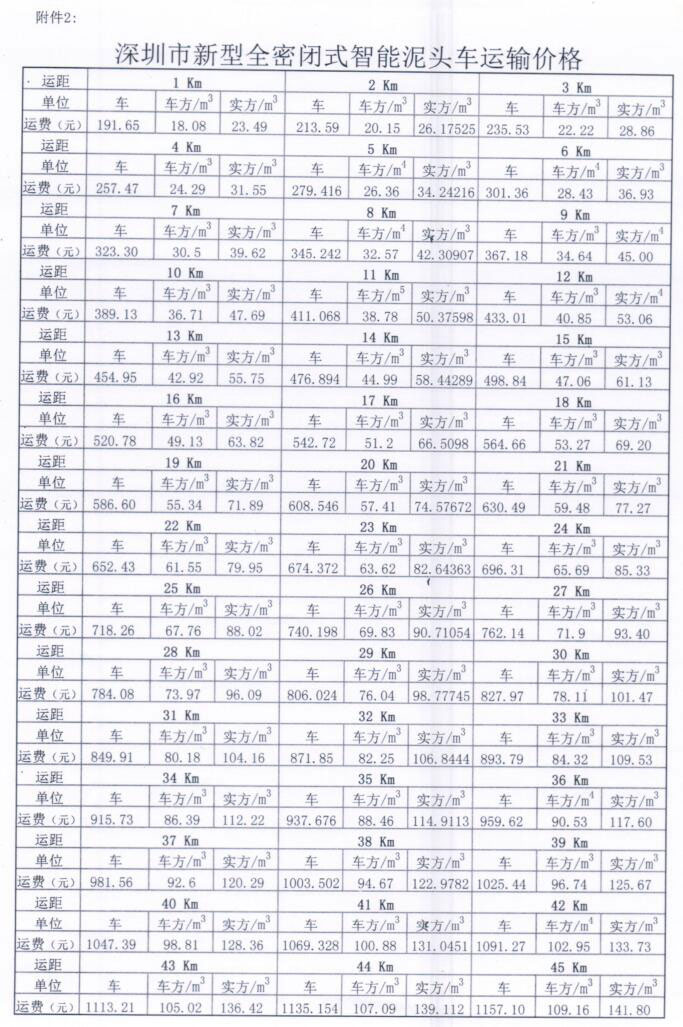 附件2:
深圳市新型全密闭式智能泥头车运输价格
运距 1 Km 2 Km 3 Km
单位 车 车方/m³ 实方/m³ 车 车方/m³ 实方/m³ 车 车方/m³ 实方/m³
运费（元） 191.65 18.08 23.49 213.59 20.15 26.17525 235.53 22.22 28.86
运距 4 Km 5 Km 6 Km
单位 车 车方/m³ 实方/m³ 车 车方/m⁴ 实方/m³ 车 车方/m⁴ 实方/m³
运费（元） 257.47 24.29 31.55 279.416 26.36 34.24216 301.36 28.43 36.93
运距 7 Km 8 Km 9 Km
单位 车 车方/m³ 实方/m³ 车 车方/m⁴ 实方/m³ 车 车方/m⁴ 实方/m³
运费（元） 323.30 30.5 39.62 345.242 32.57 42.30907 367.18 34.64 45.00
运距 10 Km 11 Km 12 Km
单位 车 车方/m³ 实方/m³ 车 车方/m⁵ 实方/m³ 车 车方/m³ 实方/m⁴
运费（元） 389.13 36.71 47.69 411.068 38.78 50.37598 433.01 40.85 53.06
运距 13 Km 14 Km 15 Km
单位 车 车方/m³ 实方/m³ 车 车方/m³ 实方/m³ 车 车方/m³ 实方/m³
运费（元） 454.95 42.92 55.75 476.894 44.99 58.44289 498.84 47.06 61.13
运距 16 Km 17 Km 18 Km
单位 车 车方/m³ 实方/m³ 车 车方/m³ 实方/m³ 车 车方/m³ 实方/m³
运费（元） 520.78 49.13 63.82 542.72 51.2 66.5098 564.66 53.27 69.20
运距 19 Km 20 Km 21 Km
单位 车 车方/m³ 实方/m³ 车 车方/m³ 实方/m³ 车 车方/m³ 实方/m³
运费（元） 586.60 55.34 71.89 608.546 57.41 74.57672 630.49 59.48 77.27
运距 22 Km 23 Km 24 Km
单位 车 车方/m³ 实方/m³ 车 车方/m³ 实方/m³ 车 车方/m³ 实方/m³
运费（元） 652.43 61.55 79.95 674.372 63.62 82.64363 696.31 65.69 85.33
运距 25 Km 26 Km 27 Km
单位 车 车方/m³ 实方/m³ 车 车方/m³ 实方/m³ 车 车方/m³ 实方/m³
运费（元） 718.26 67.76 88.02 740.198 69.83 90.71054 762.14 71.9 93.40
运距 28 Km 29 Km 30 Km
单位 车 车方/m³ 实方/m³ 车 车方/m³ 实方/m³ 车 车方/m³ 实方/m³
运费（元） 784.08 73.97 96.09 806.024 76.04 98.77745 827.97 78.11 101.47
运距 31 Km 32 Km 33 Km
单位 车 车方/m³ 实方/m³ 车 车方/m³ 实方/m³ 车 车方/m³ 实方/m³
运费（元） 849.91 80.18 104.16 871.85 82.25 106.8444 893.79 84.32 109.53
运距 34 Km 35 Km 36 Km
单位 车 车方/m³ 实方/m³ 车 车方/m³ 实方/m³ 车 车方/m⁴ 实方/m³
运费（元） 915.73 86.39 112.22 937.676 88.46 114.9113 959.62 90.53 117.60
运距 37 Km 38 Km 39 Km
单位 车 车方/m³ 实方/m³ 车 车方/m³ 实方/m³ 车 车方/m³ 实方/m³
运费（元） 981.56 92.6 120.29 1003.502 94.67 122.9782 1025.44 96.74 125.67
运距 40 Km 41 Km 42 Km
单位 车 车方/m³ 实方/m³ 车 车方/m³ 实方/m³ 车 车方/m⁴ 实方/m³
运费（元） 1047.39 98.81 128.36 1069.328 100.88 131.0451 1091.27 102.95 133.73
运距 43 Km 44 Km 45 Km
单位 车 车方/m³ 实方/m³ 车 车方/m³ 实方/m³ 车 车方/m³ 实方/m³
运费（元） 1113.21 105.02 136.42 1135.154 107.09 139.112 1157.10 109.16 141.80